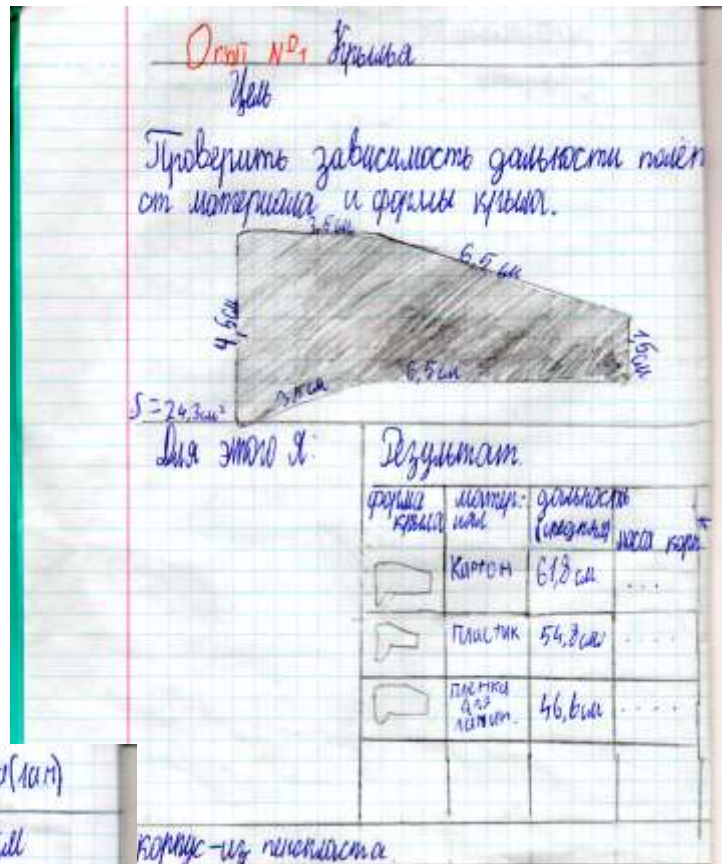 Опыт №1 Крылья
Цель
Проверить зависимость дальности полёт
от материала и формы крыла.
3,5 см
6,5 см
4,5 см
1,5 см
3,5 см
6,5 см
S = 24,3 см²
Для этого я:
Результат.
форма крыла
матер-иал
дальность (средняя)
масса корп
Картон
61,8 см
....
Пластик
54,8 см
....
пленка для ламин.
46,6 см
....
(лам)
корпус-из пенопласта